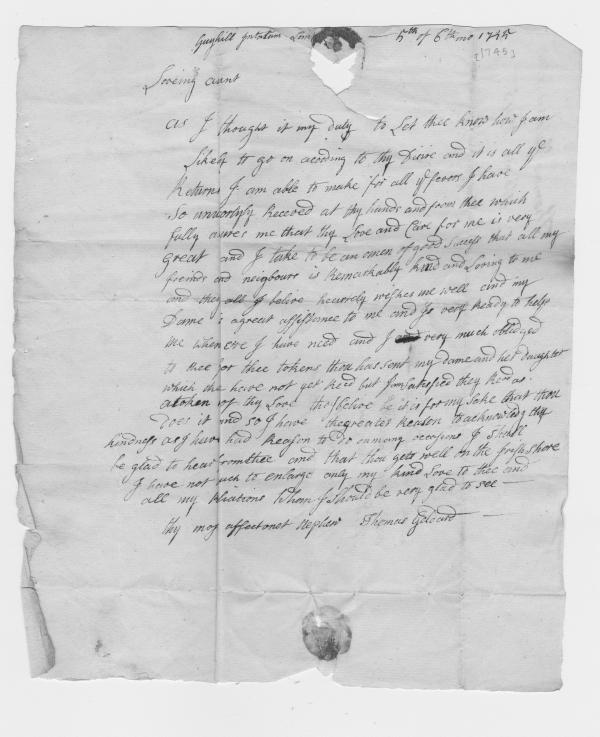 5th of 6th mo 1745
[1745]
Loveing aunt
as I thought it my duty to Let thee know how I am
Likely to go on acoding to thy Disire and it is all ye
Returns I am able to make for all ye favors I have
So unworthyly Receved at thy hands and from thee which
fully asures me that thy Love and Care for me is very
great and I take to be an omen of good Sucess that all my
freinds and neighbours is Remarkably kind and Loving to me
and they all I belive heverely wishes me well and my
Dame is agreat assistance to me and is very Ready to help
me whenever I have need and I very much obledged
to thee for thee tokens thou has sent my dame and her daughter
which the have not yet Recd but I'm satisfied they Red as
atoken of thy Love tho I belive it is for my Sake that thou
Does it and so I have the greater Reason to acknowledg thy
kindness as I have had Reason to do on many occasions I Shall
be glad to hear from thee and that thou gets well on the Irish shore
I have not much to enlarge only my kind Love to thee and
all my Relations whom I Should be very glad to see
thy most affectonet Nephew Thomas